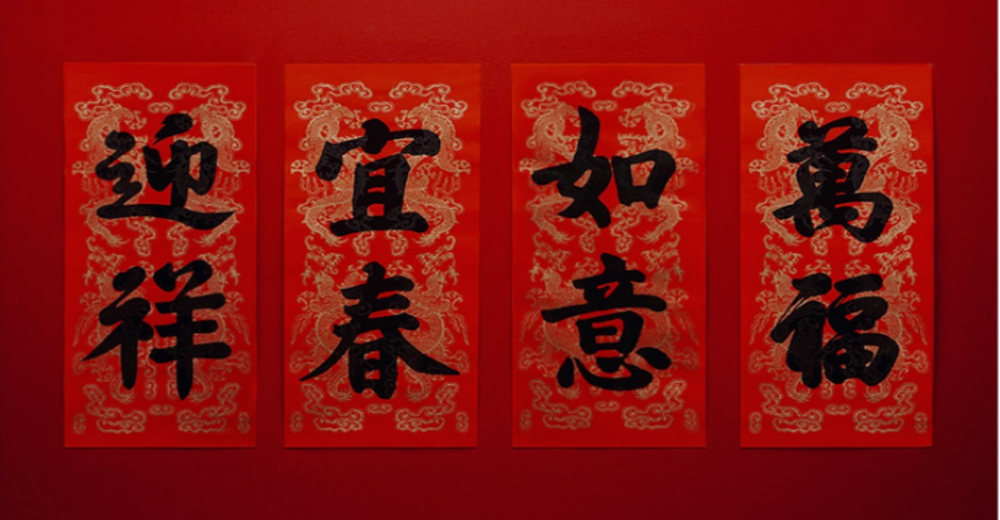 萬福
如意
宜春
迎祥